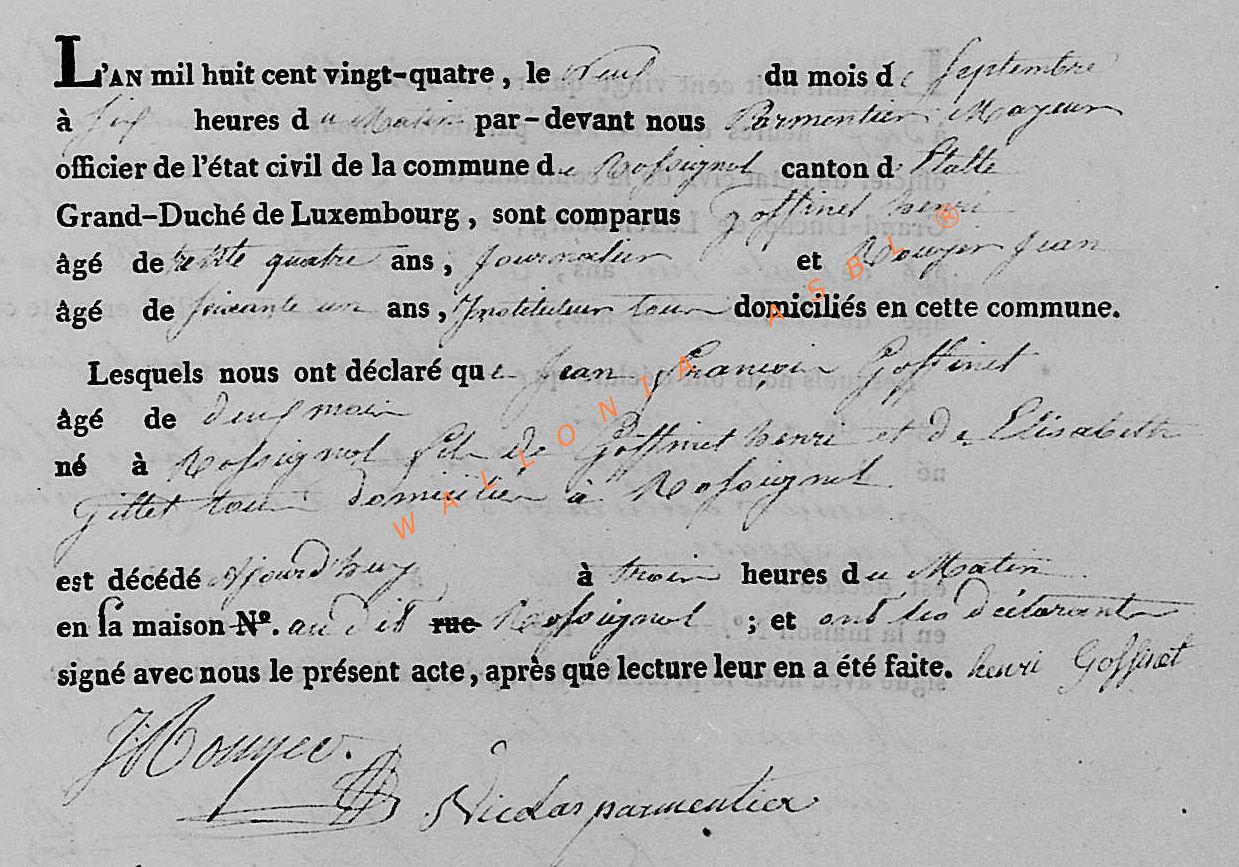 L'AN mil huit cent vingt-quatre, le neuf du mois de Septembre
à six heures du Matin par-devant nous Parmentier Mayeur
officier de l'état civil de la commune de Rossignol canton d'Etalle
Grand-Duché de Luxembourg, sont comparus Goffinet henri
âgé de trente quatre ans, Journalier et Rouyer Jean
âgé de soixante un ans, Instituteur tous domiciliés en cette commune.
Lesquels nous ont déclaré que Jean François Goffinet
âgé de deux mois
né à Rossignol fils de Goffinet henri et de Elisabeth
Gillet tous domiciliés à Rossignol
est décédé à trois heures du Matin
en sa maison Nº. au dit rue Rossignol ; et ont les déclarants
signé avec nous le présent acte, après que lecture leur en a été faite. henri Goffinet
JRouyer.
Nicolas parmentier
WALLONIA ASBL ®